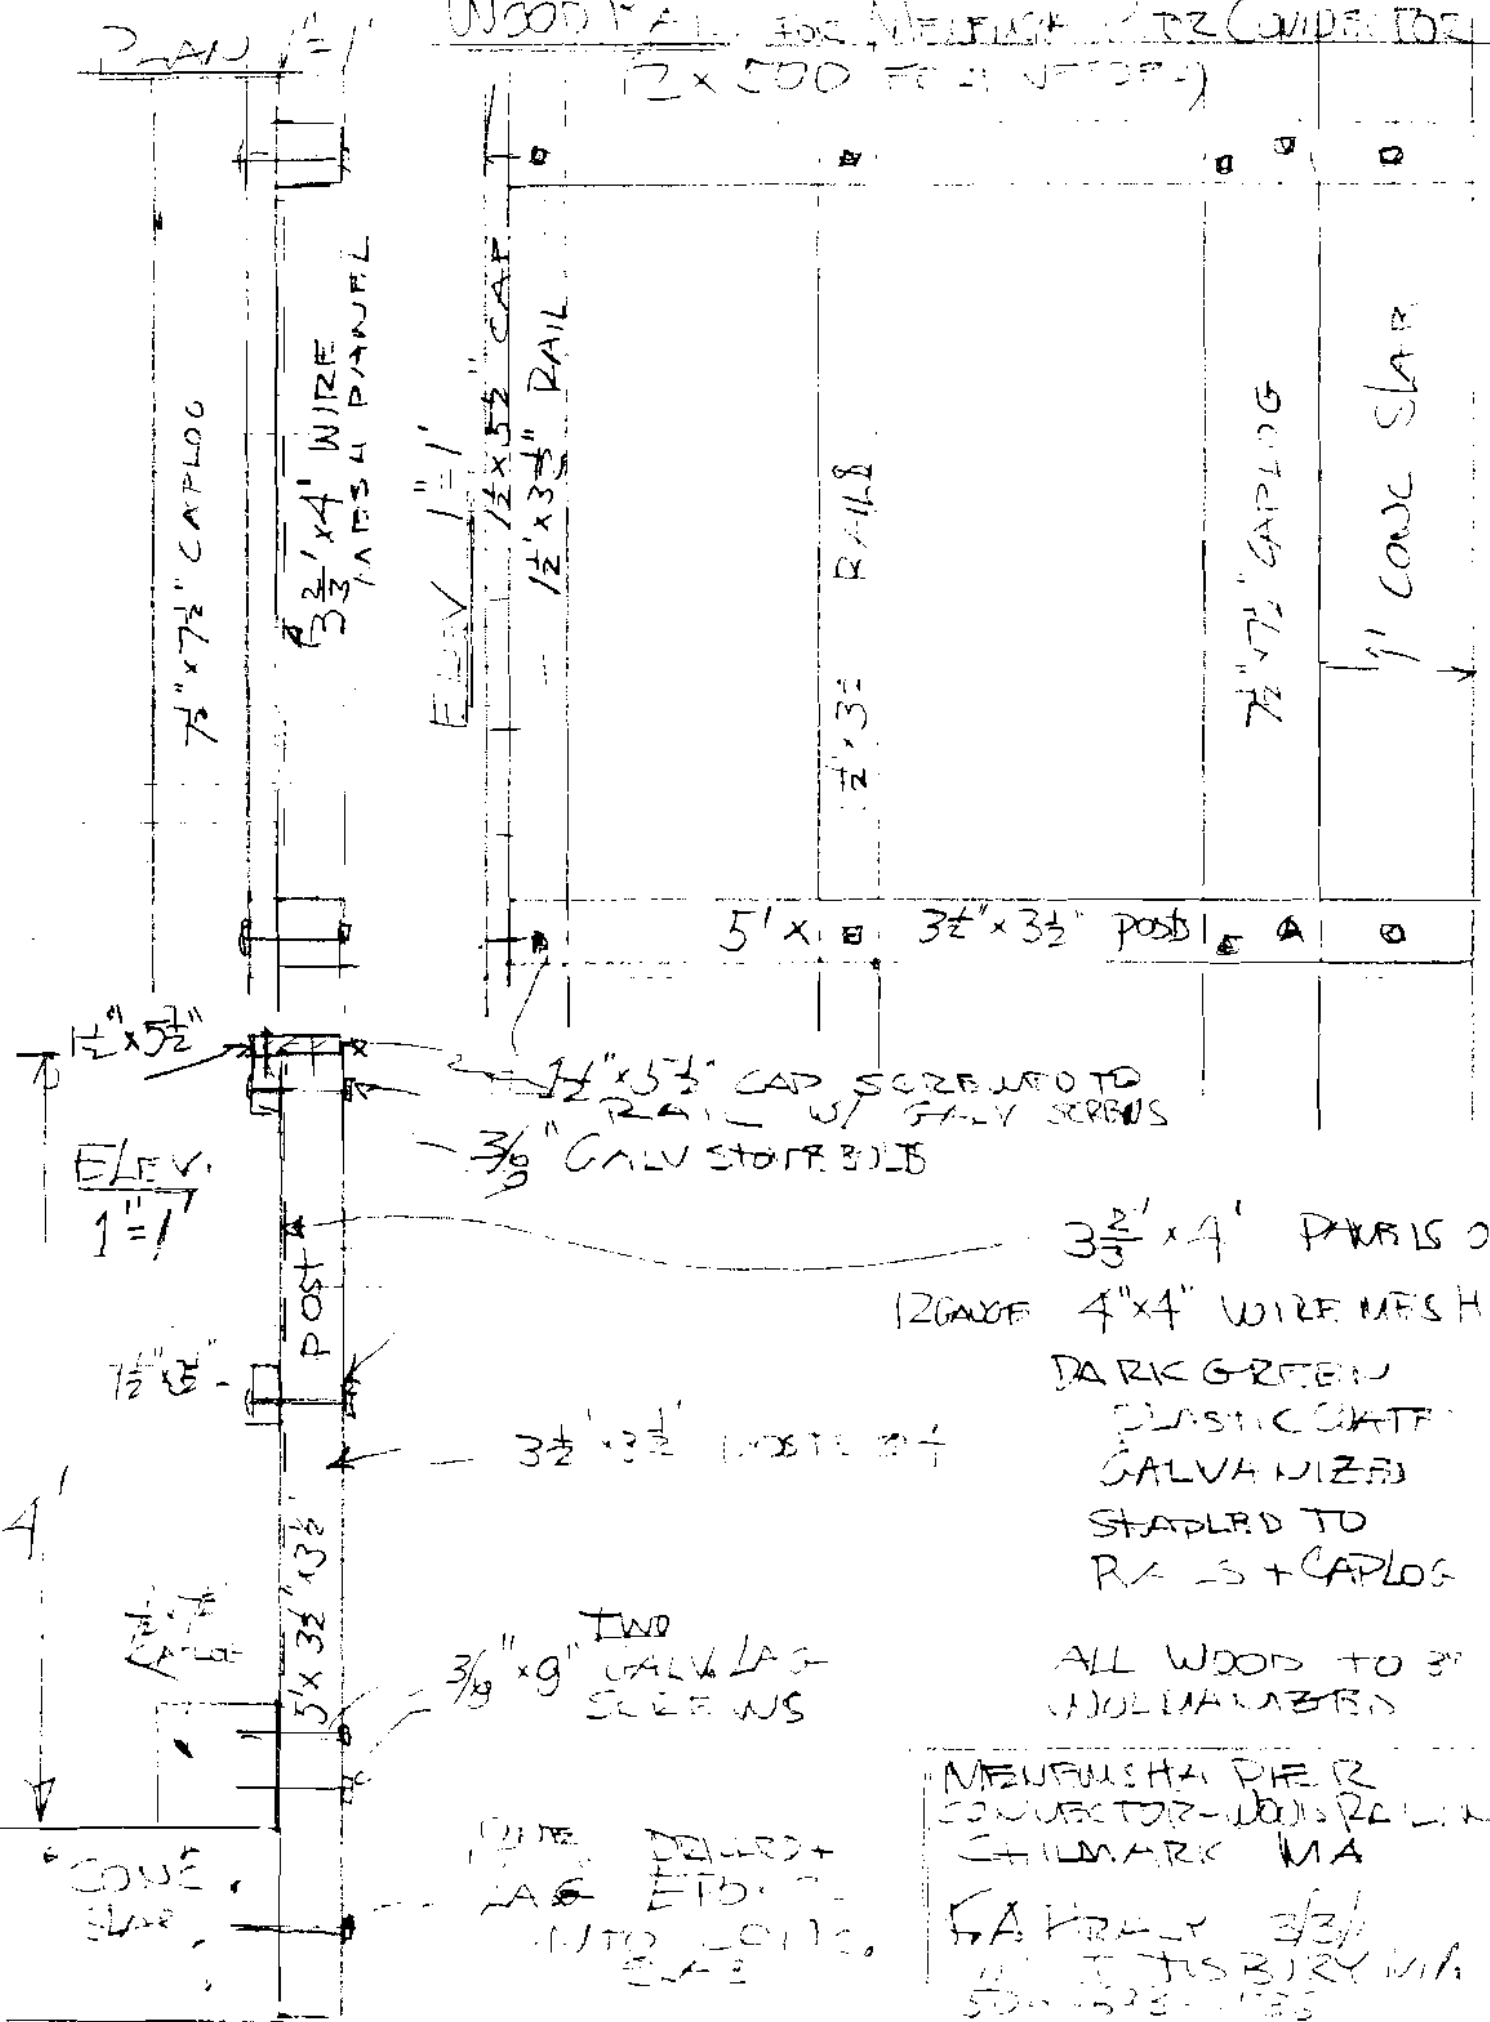 PLAN 1"=1'
WOOD RAIL FOR MENEMSHA PIER CONNECTOR
(2 x 500 FEET NEEDED)
7½" x 7½" CAPLOG
3⅔' x 4' WIRE
MESH PANEL
ELEV 1"=1'
1½" x 5½" CAP
1½" x 3½" RAIL
1½" x 3½ RAILS
7½" x 7½" CAPLOG
1' CONC SLAB
5' x 3½" x 3½" POSTS
1½" x 5½"
1½" x 5½" CAP SCREWED TO
RAIL W/ GALV SCREWS
3/8" GALV STOVE BOLTS
ELEV.
1"=1'
POST
3⅔' x 4' PANELS O
12 GAUGE 4"x4" WIRE MESH
DARK GREEN
PLASTIC COATE
GALVANIZED
STAPLED TO
RAILS + CAPLOG
3½" x 3½" POSTS
4'
5' x 3½" x 3½"
CAPLOG
TWO
3/8" x 9" GALV. LAG
SCREWS
ALL WOOD TO BE
WOLMANIZED
CONC.
SLAB
ONE DRILLED +
LAG
INTO CONC.
SLAB
MENEMSHA PIER
CONNECTOR-WOOD RAILIN
CHILMARK MA
3/3/
TISBURY MA